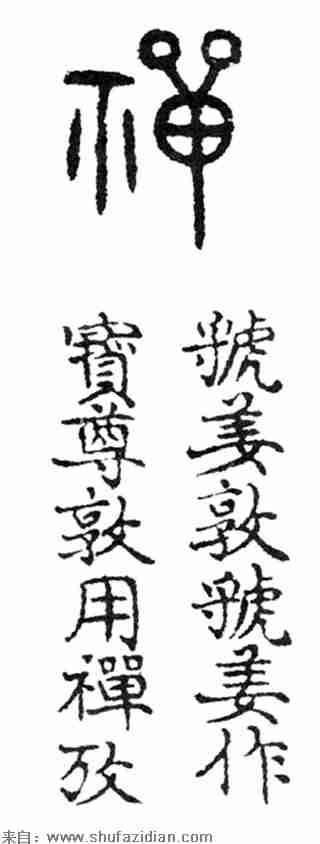 禪
虢姜敦虢姜作
寶尊敦用禪攷
来自：www.shufazidian.com